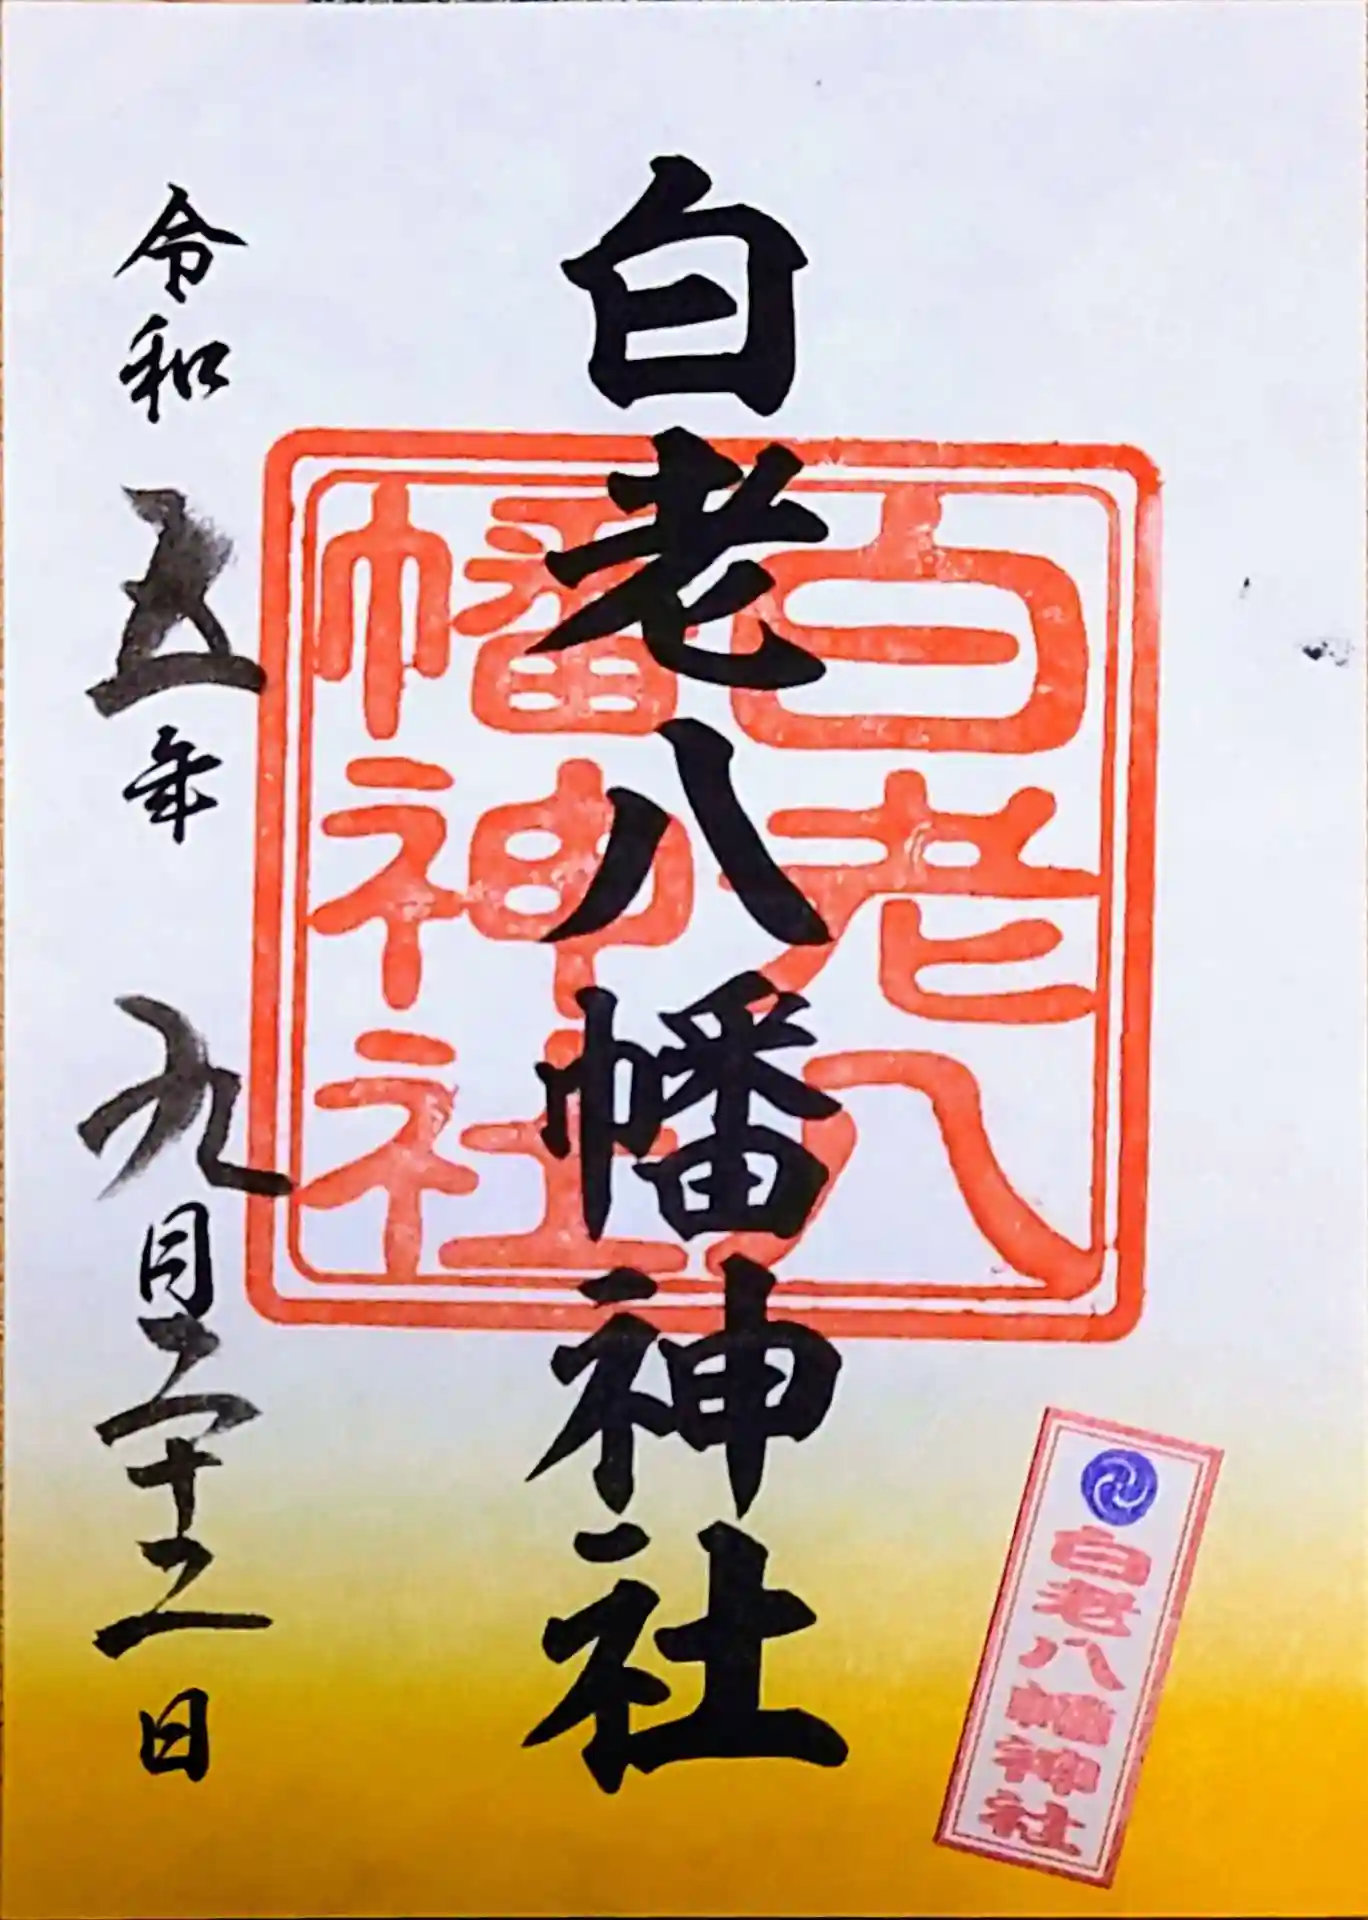 白老八幡神社
白老八
幡神社
白老八幡神社
令和五年九月二十二日